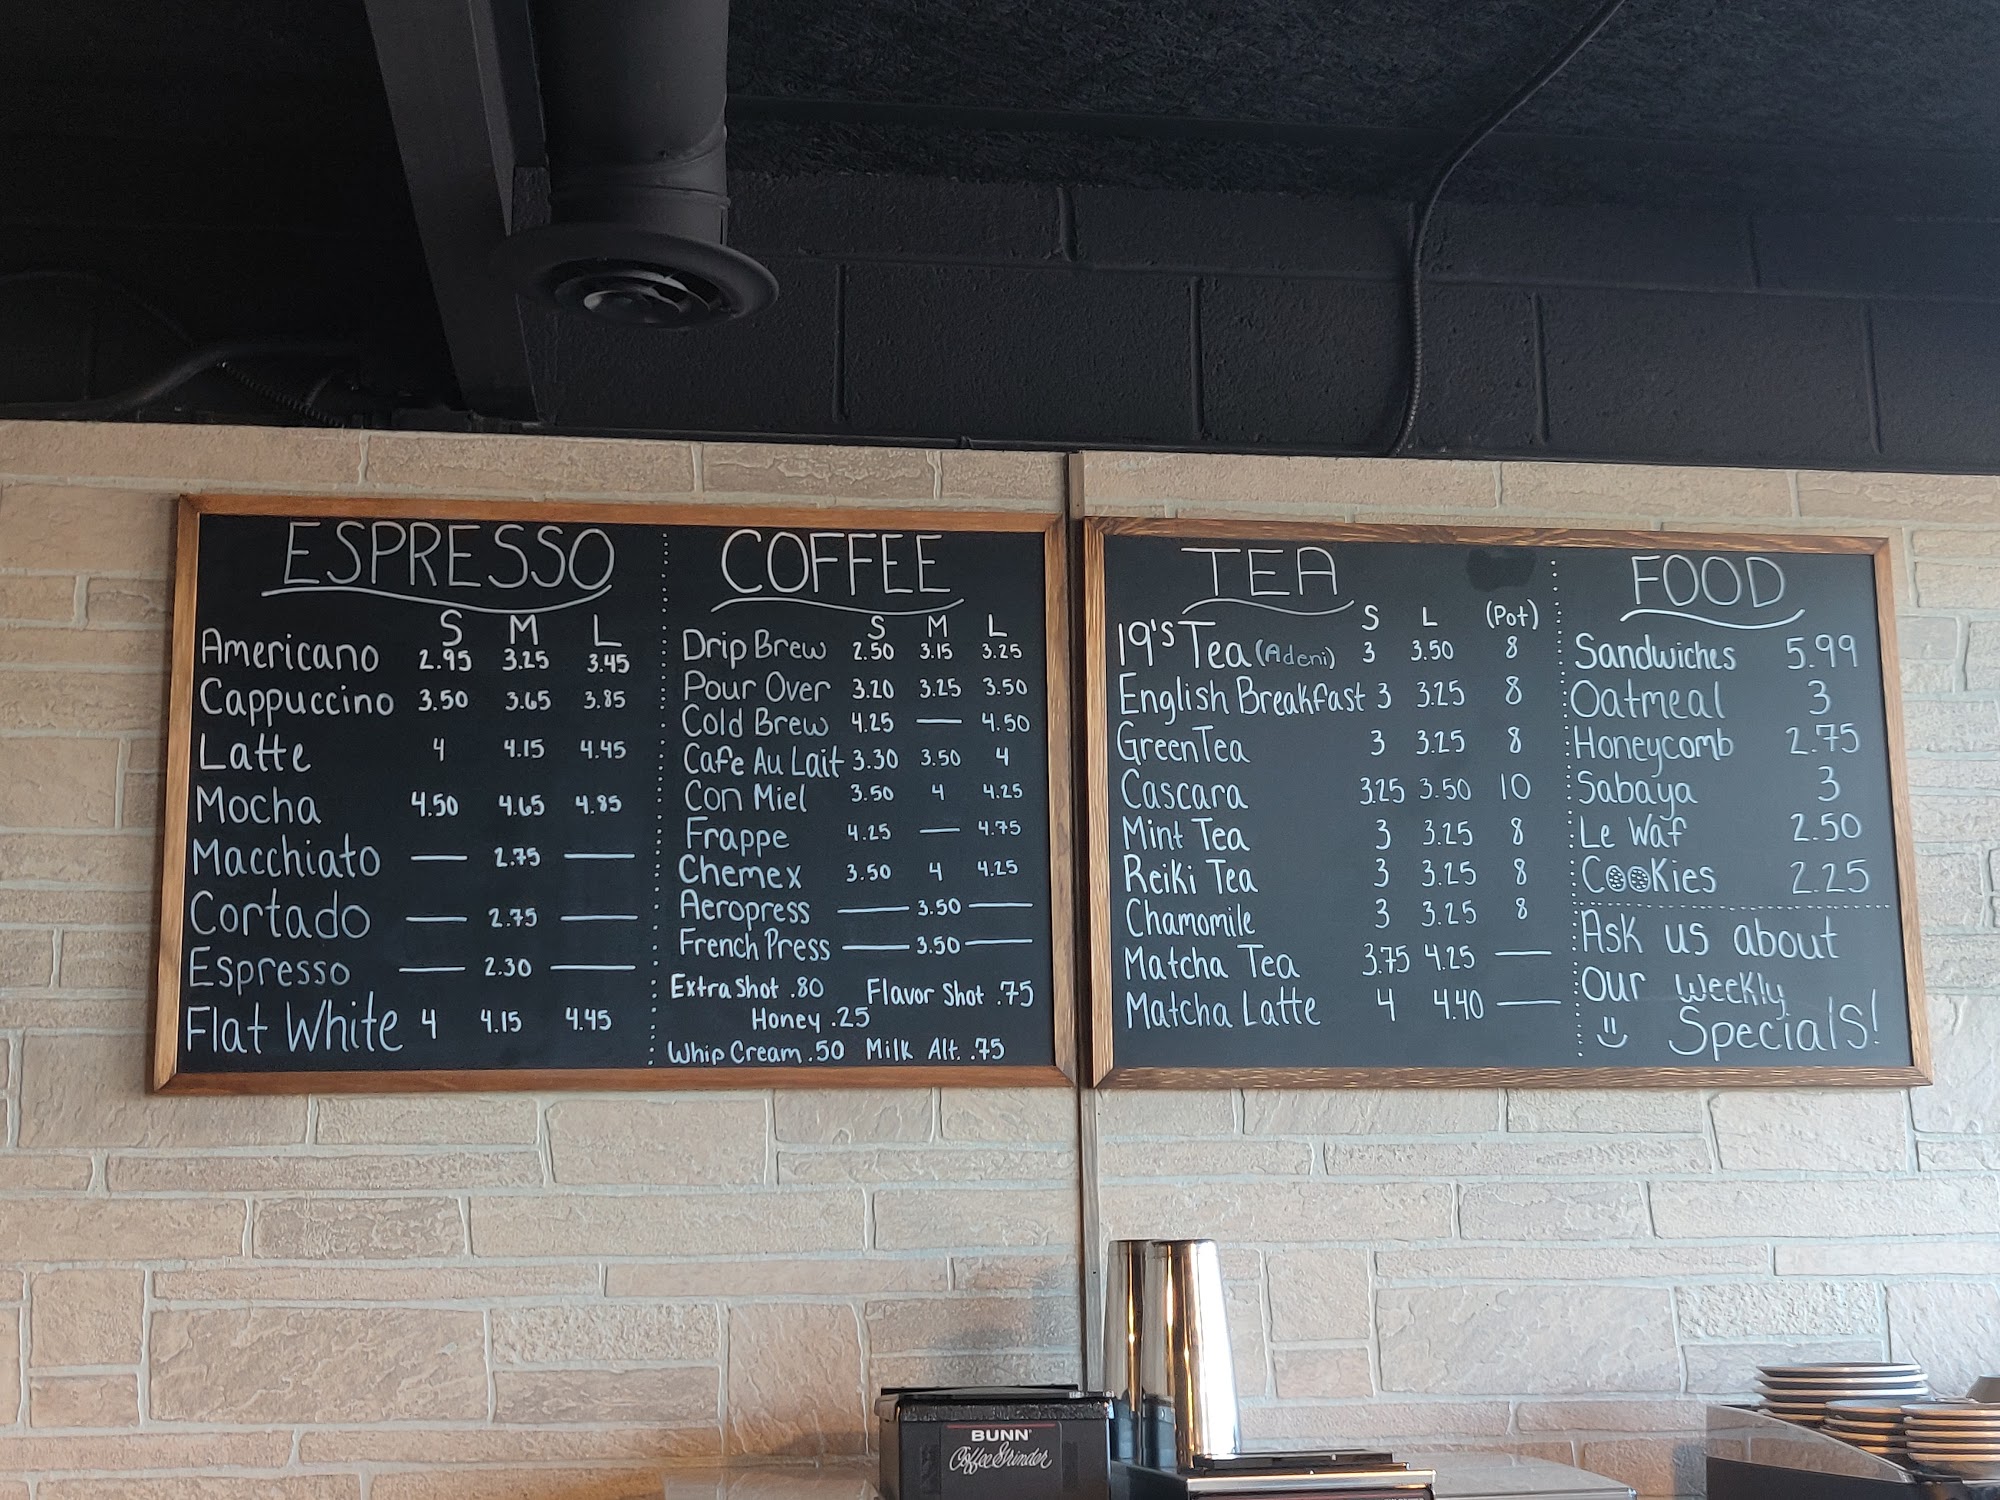 ESPRESSO
S M L
Americano 2.95 3.25 3.45
Cappuccino 3.50 3.65 3.85
Latte 4 4.15 4.45
Mocha 4.50 4.65 4.85
Macchiato — 2.75 —
Cortado — 2.75 —
Espresso — 2.30 —
Flat White 4 4.15 4.45
COFFEE
S M L
Drip Brew 2.50 3.15 3.25
Pour Over 3.20 3.25 3.50
Cold Brew 4.25 — 4.50
Cafe Au Lait 3.30 3.50 4
Con Miel 3.50 4 4.25
Frappe 4.25 — 4.75
Chemex 3.50 4 4.25
Aeropress — 3.50 —
French Press — 3.50 —
Extra Shot .80 Flavor Shot .75
Honey .25
Whip Cream .50 Milk Alt. .75
TEA
S L (Pot)
19's Tea (Adeni) 3 3.50 8
English Breakfast 3 3.25 8
Green Tea 3 3.25 8
Cascara 3.25 3.50 10
Mint Tea 3 3.25 8
Reiki Tea 3 3.25 8
Chamomile 3 3.25 8
Matcha Tea 3.75 4.25 —
Matcha Latte 4 4.40 —
FOOD
Sandwiches 5.99
Oatmeal 3
Honeycomb 2.75
Sabaya 3
Le Waf 2.50
Cookies 2.25
Ask us about
Our weekly
Specials!
BUNN
Coffee Grinder